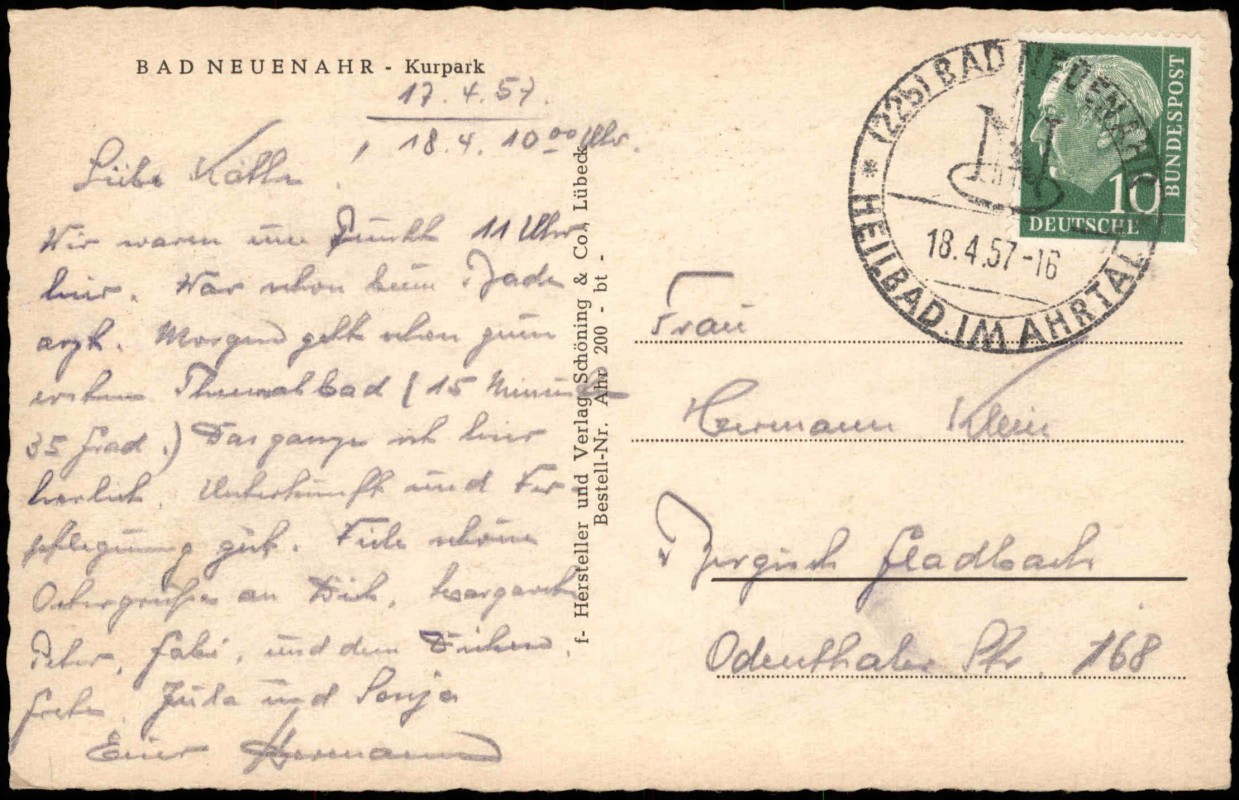 BAD NEUENAHR - Kurpark
17.4.57.
18.4. 10 00 Uhr.
Liebe Käthe
Wir waren um Punkt 11 Uhr
hier. War schon beim Bade
arzt. Morgen geht schon zum
ersten Thermalbad (15 Minuten
35 Grad.) Das ganze ist hier
herrlich. Unterkunft und Ver-
pflegung gut. Viele schöne
Ostergrüße an Dich, Margareth
Peter, Gabi, und dem Dicken
Jula und Sonja
Euer Hermann
f- Hersteller und Verlag Schöning & Co., Lübeck
Bestell-Nr. Ahr 200 - bt -
(22b) BAD NEUENAHR
HEILBAD IM AHRTAL
18.4.57-16
10
DEUTSCHE
BUNDESPOST
Frau
Hermann Klein
Bergisch Gladbach
Odenthaler Str. 168